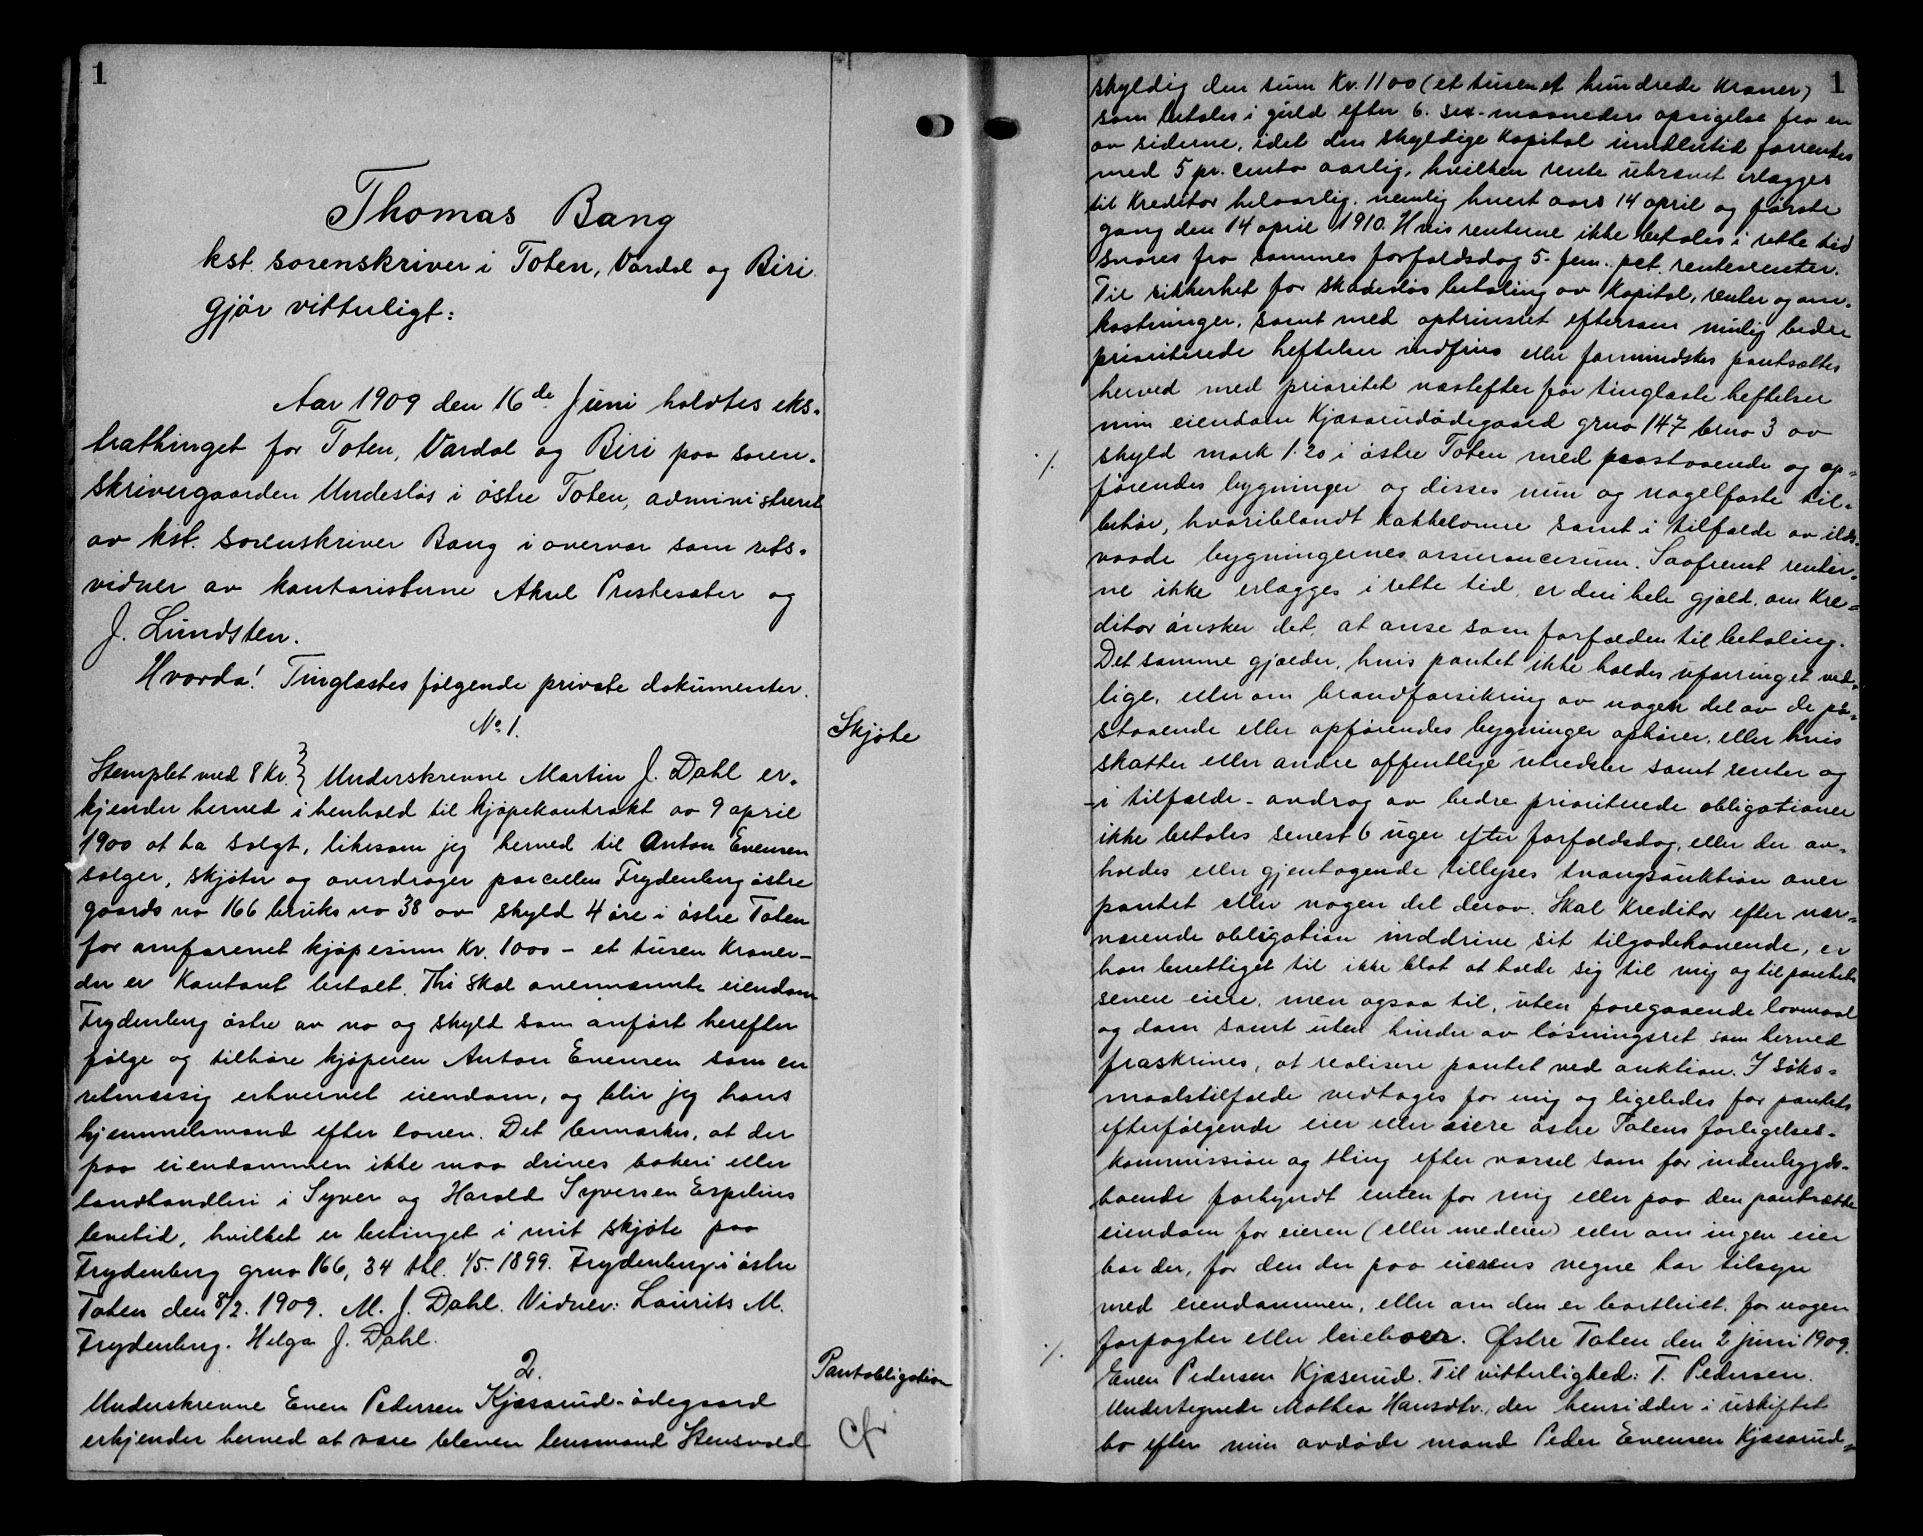 1
Thomas Bang
kst. sorenskriver i Toten, Vardal og Biri
gjør vitterligt:
Aar 1909 den 16de Juni holdtes eks-
trathinget for Toten, Vardal og Biri paa soren-
skrivergaarden Undesløs i østre Toten, administreret
av kst. sorenskriver Bang i overvær som rets-
vidner av kontoristerne Aksel Prestesæter og
J. Lundsten.
Hvorda! Tinglæstes følgende private dokumenter.
No 1.
Skjøte
Stemplet med 8 Kr. } Underskrevne Martin J. Dahl er-
kjender herved i henhold til kjøpekontrakt av 9 april
1900 at ha solgt, likesom jeg herved til Anton Evensen
sælger, skjøter og overdrager parcellen Frydenberg østre
gaards no 166 bruks no 38 av skyld 4 øre i østre Toten
for omforenet kjøpesum Kr. 1000 – et tusen Kroner –
der er Kontant betalt. Thi skal ovennævnte eiendom
Frydenberg østre av no og skyld som anført herefter
følge og tilhøre kjøperen Anton Evensen som en
retmæssig erhvervet eiendom, og blir jeg hans
hjemmelsmand efter loven. Det bemærkes, at der
paa eiendommen ikke maa drives bakeri eller
landhandleri i Syver og Harald Syversen Espelins
levetid, hvilket er betinget i mit skjøte paa
Frydenberg grno 166, 34 thl. 1/5. 1899. Frydenberg i østre
Toten den 8/2. 1909. M. J. Dahl. Vidner: Laurits M.
Frydenberg. Helga J. Dahl.
2.
Pantobligation
Underskrevne Even Pedersen Kjæserud-ødegaard
erkjender herved at være bleven lensmand Stensvold
1
skyldig den sum Kr. 1100 (et tusen et hundrede Kroner)
som betales i guld efter 6. sex-maaneders opsigelse fra en
av siderne, idet den skyldige Kapital imidlertid forrentes
med 5 pr. cento aarlig, hvilken rente ukrævet erlægges
til Kreditor helaarlig, nemlig hvert aars 14 april og første
gang den 14 april 1910. Hvis renterne ikke betales i rette tid
svares fra sammes forfaldsdag 5- fem- pct. rentesrenter.
Til sikkerhet for skadesløs betaling av Kapital, renter og om-
kostninger, samt med optrinsret eftersom mulig bedre
prioriterede heftelser indfries eller formindskes pantsættes
herved med prioritet næstefter før tinglæste heftelser
min eiendom Kjæserudødegaard grno 147 brno 3 av
skyld mark 1.20 i østre Toten med paastaaende og op-
førendes bygninger og disses mur og nagelfaste til-
behør, hvoriblandt kakkelovne samt i tilfælde av ilds-
vaade bygningernes assurancesum. Saafremt renter-
ne ikke erlægges i rette tid, er den hele gjæld, om Kre-
ditor ønsker det, at anse som forfalden til betaling.
Det samme gjælder, hvis pantet ikke holdes uforringet ved-
lige, eller om brandforsikring av nogen del av de på-
staaende eller opførendes bygninger ophører, eller hvis
skatter eller andre offentlige utredsler samt renter og
- i tilfælde - avdrag av bedre prioriterede obligationer
ikke betales senest 6 uger efter forfaldsdag, eller der av-
holdes eller gjentagende tillyses tvangsauktion over
pantet eller nogen del derav. Skal Kreditor efter nær-
værende obligation inddrive sit tilgodehavende, er
han berettiget til ikke blot at holde sig til mig og til pantets
senere eiere, men ogsaa til, uten foregaaende lovmaal
og dom samt uten hinder av løsningsret, som herved
fraskrives, at realisere pantet ved auktion. I søks-
maalstilfælde vedtages for mig og ligeledes for pantets
efterfølgende eier eller eiere østre Totens forligelses-
kommission og thing efter varsel som for indenbygds-
boende forkyndt enten for mig eller paa den pantsatte
eiendom for eieren (eller medeier) eller om ingen eier
bor der, for den der paa eierens vegne har tilsyn
med eiendommen, eller om den er bortleiet, for nogen
forpagter eller leieboer. Østre Toten den 2 juni 1909.
Even Pedersen Kjæserud. Til vitterlighed: T. Pedersen.
Undertegnede Mathea Hansdtr., der hensidder i uskiftet
bo efter min avdøde mand Peder Evensen Kjæserud-